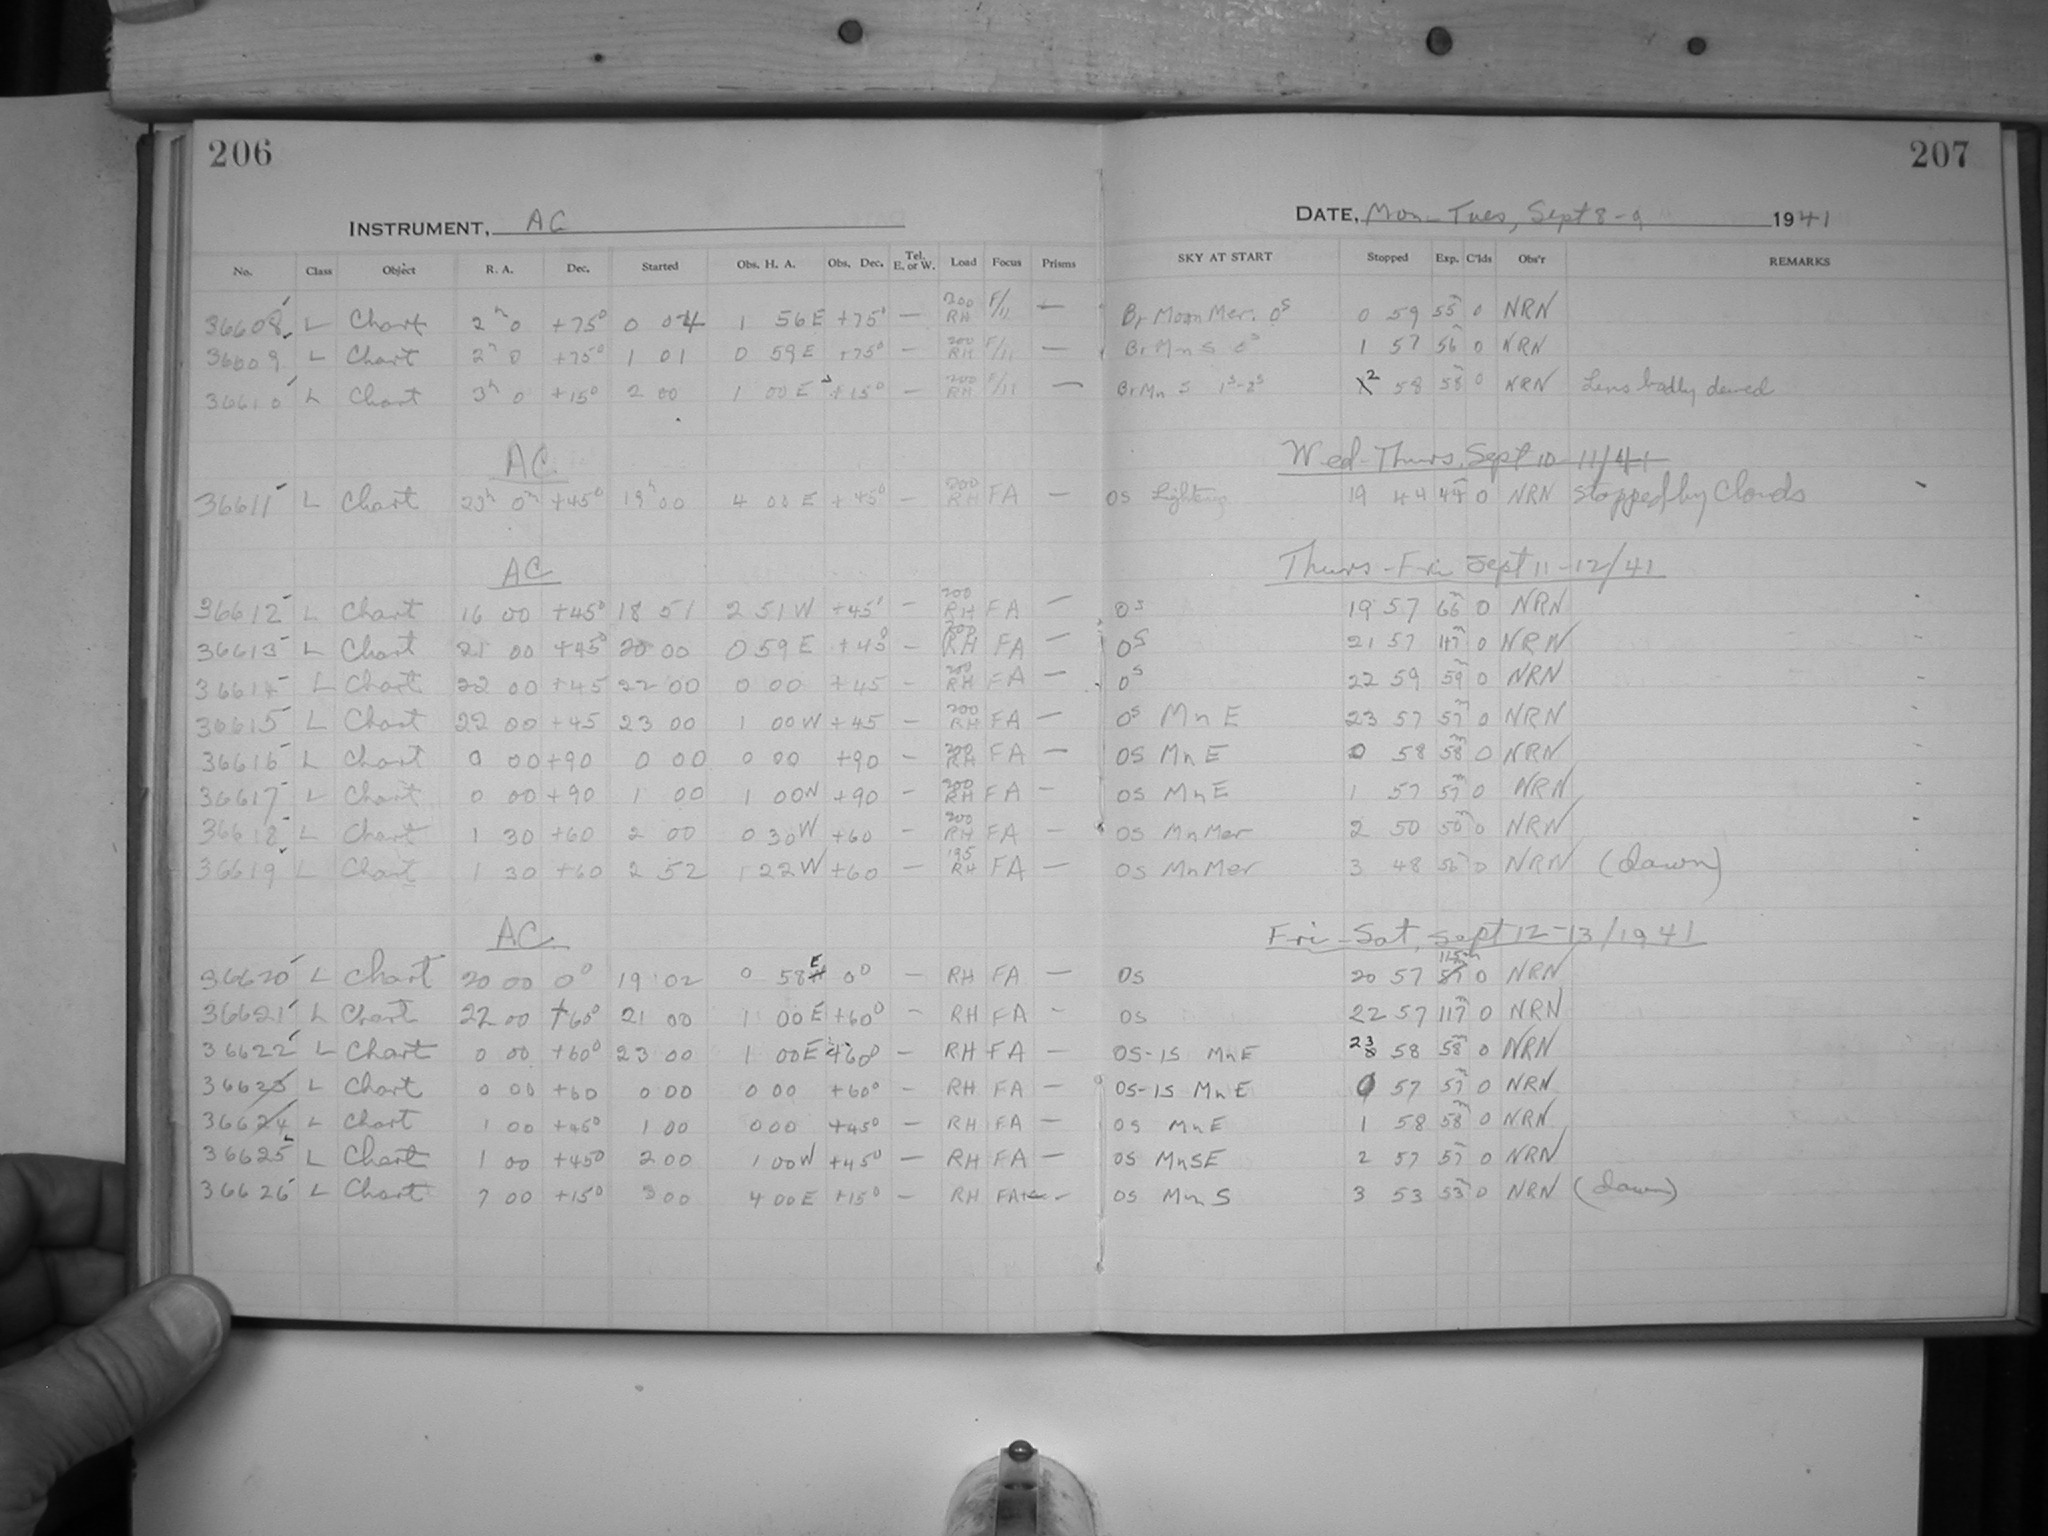 206 207
INSTRUMENT, AC DATE, Mon-Tues, Sept 8-9 1941
No. Class Object R. A. Dec. Started Obs. H. A. Obs. Dec. Tel. E. or W. Load Focus Prisms SKY AT START Stopped Exp. C'lds Obs'r REMARKS
36608 L Chart 2h 0 +75° 0 04 1 56E +75° — 200 RH F/11 — Br Moon Mer. 0s 0 59 55m 0 NRN
36609 L Chart 2h 0 +75° 1 01 0 59E +75° — 200 RH F/11 — Br Mn S 0s 1 57 56 0 NRN
36610 L Chart 3h 0 +15° 2 00 1 00E +15° — 200 RH F/11 — Br Mn S 1s-2s 2 58 58 0 NRN Lens badly dewed
AC Wed-Thurs, Sept 10-11/41
36611 L Chart 23h 0m +45° 19h 00 4 00 E +45° — 200 RH FA — OS Lightning 19 44 44m 0 NRN Stopped by Clouds
AC Thurs-Fri Sept 11-12/41
36612 L Chart 16 00 +45° 18 51 2 51W +45° — 200 RH FA — 0s 19 57 66m 0 NRN
36613 L Chart 21 00 +45° 20 00 0 59 E +45° — 200 RH FA — 0s 21 57 117m 0 NRN
36614 L Chart 22 00 +45 22 00 0 00 +45 — 200 RH FA — 0s 22 59 59m 0 NRN
36615 L Chart 22 00 +45 23 00 1 00W +45 — 200 RH FA — 0s Mn E 23 57 57m 0 NRN
36616 L Chart 0 00 +90 0 00 0 00 +90 — 200 RH FA — OS Mn E 0 58 58m 0 NRN
36617 L Chart 0 00 +90 1 00 1 00W +90 — 200 RH FA — OS Mn E 1 57 57m 0 NRN
36618 L Chart 1 30 +60 2 00 0 30W +60 — 200 RH FA — OS Mn Mer 2 50 50m 0 NRN
36619 L Chart 1 30 +60 2 52 1 22W +60 — 195 RH FA — OS Mn Mer 3 48 56 0 NRN (dawn)
AC Fri-Sat, Sept 12-13/1941
36620 L Chart 20 00 0° 19 02 0 58E 0° — RH FA — OS 20 57 115m 0 NRN
36621 L Chart 22 00 +60° 21 00 1 00E +60° — RH FA — OS 22 57 117m 0 NRN
36622 L Chart 0 00 +60° 23 00 1 00E +60° — RH FA — OS-1S Mn E 23 58 58m 0 NRN
36623 L Chart 0 00 +60 0 00 0 00 +60° — RH FA — OS-1S Mn E 0 57 57m 0 NRN
36624 L Chart 1 00 +45° 1 00 0 00 +45° — RH FA — OS Mn E 1 58 58m 0 NRN
36625 L Chart 1 00 +45° 2 00 1 00W +45° — RH FA — OS Mn SE 2 57 57m 0 NRN
36626 L Chart 7 00 +15° 3 00 4 00E +15° — RH FA — OS Mn S 3 53 53m 0 NRN (dawn)